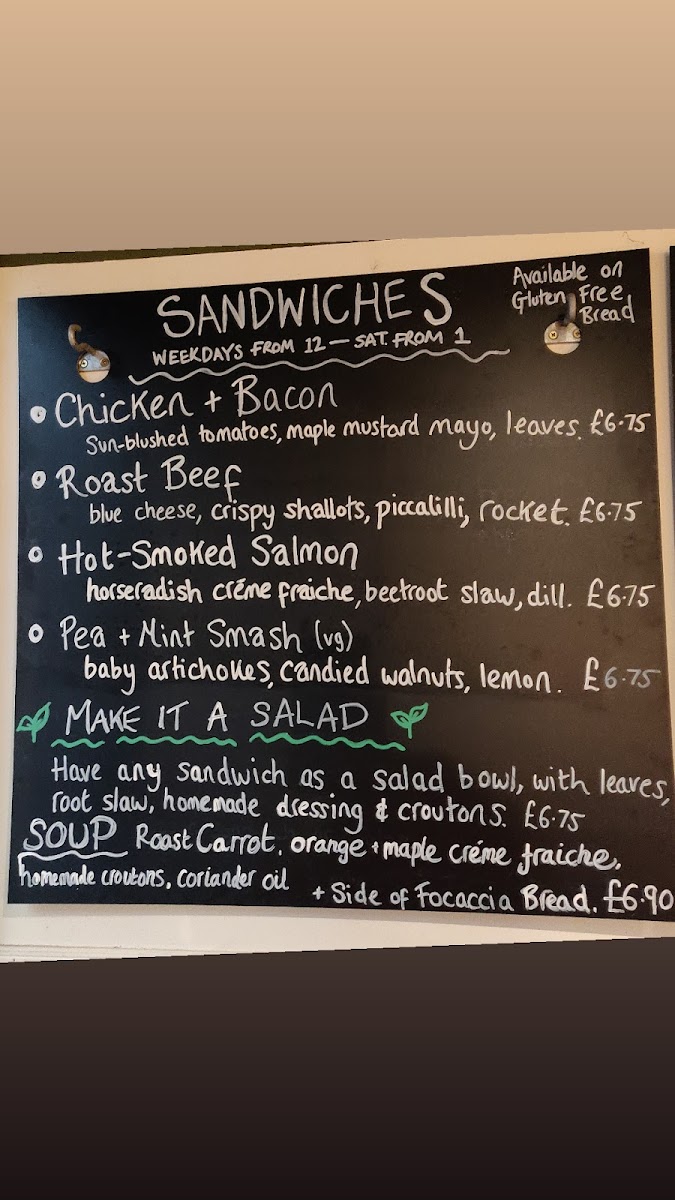 SANDWICHES
WEEKDAYS FROM 12 — SAT. FROM 1
Available on
Gluten Free
Bread
Chicken + Bacon
Sun-blushed tomatoes, maple mustard mayo, leaves. £6.75
Roast Beef
blue cheese, crispy shallots, piccalilli, rocket. £6.75
Hot-Smoked Salmon
horseradish créme fraiche, beetroot slaw, dill. £6.75
Pea + Mint Smash (vg)
baby artichokes, candied walnuts, lemon. £6.75
MAKE IT A SALAD
Have any sandwich as a salad bowl, with leaves,
root slaw, homemade dressing & croutons. £6.75
SOUP Roast Carrot, orange + maple créme fraiche,
homemade croutons, coriander oil
+ Side of Focaccia Bread. £6.90